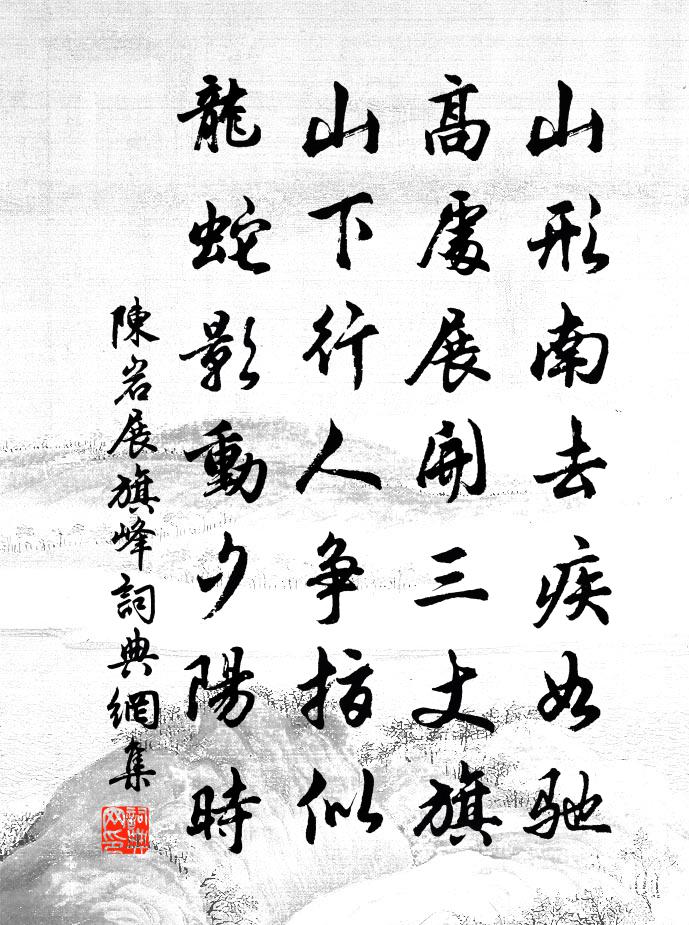 山形南去疾如馳
高處展開三丈旗
山下行人爭指似
龍蛇影動夕陽時
陳岩展旗峰詞典網集